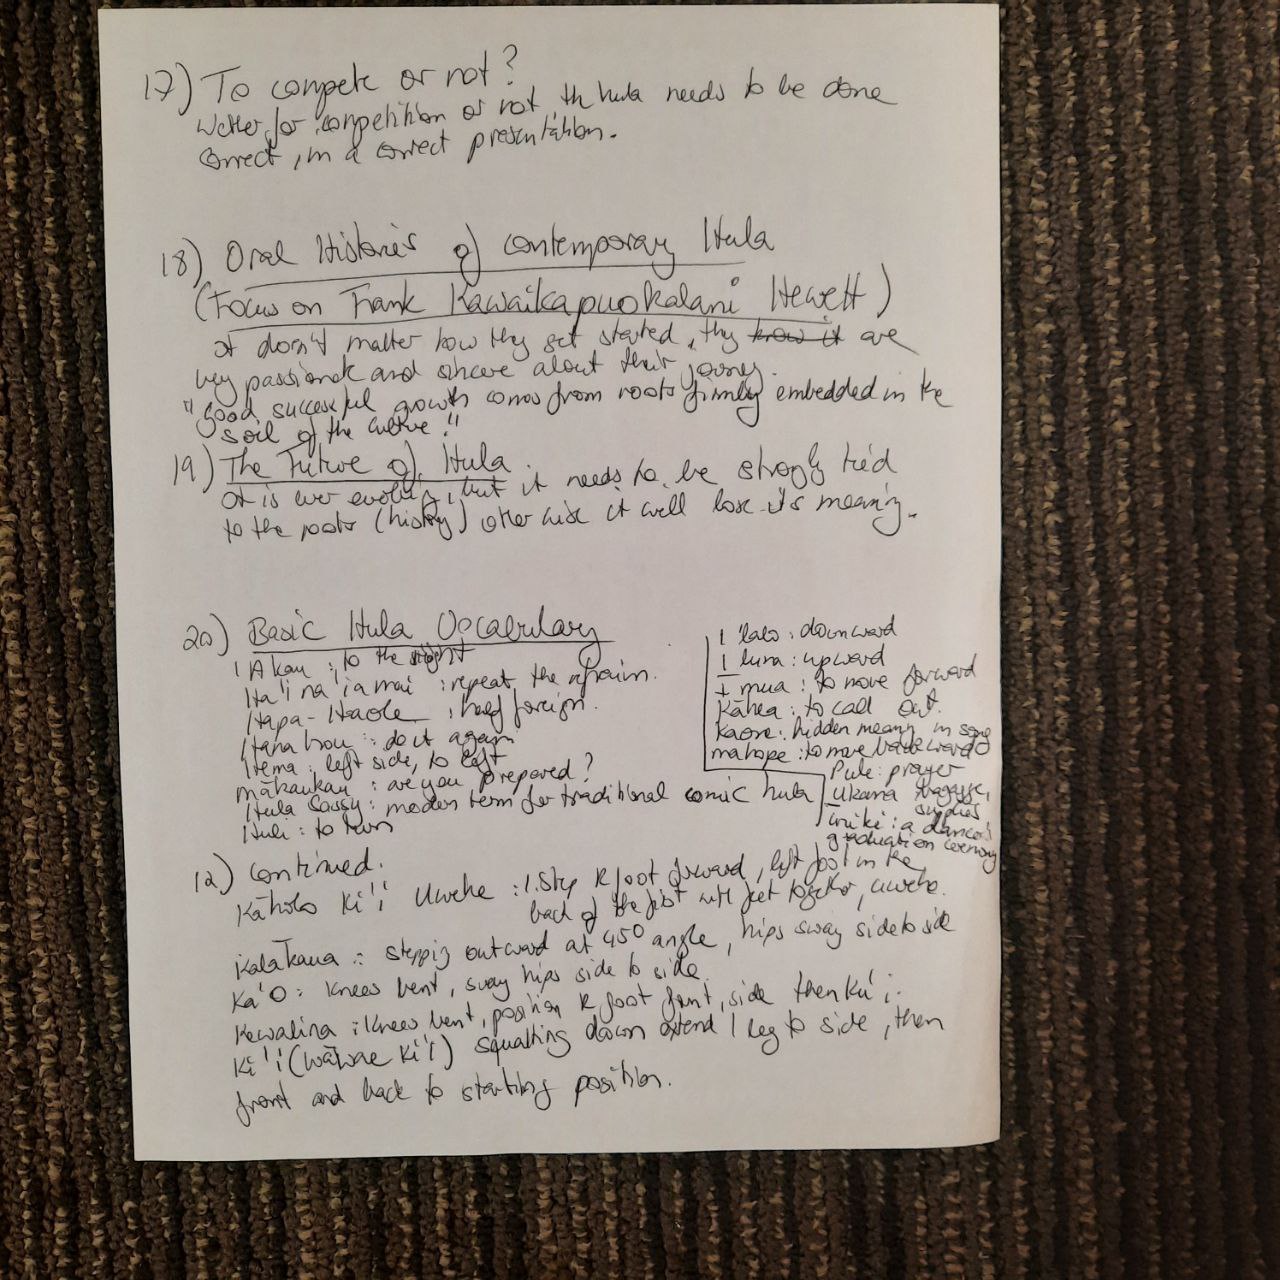 17) To compete or not?
Wether for competition or not th hula needs to be done
correct, in a correct presentation.
18) Oral Histories of contemporary Hula
(Focus on Frank Kawaikapuokalani Hewett)
It don't matter how they get started, they know it are
very passionate and sincere about their journey.
"Good successful growth comes from roots firmly embedded in the
soil of the culture!"
19) The Future of Hula
It is ever evolving, but it needs to be strongly tied
to the roots (history) otherwise it will lose its meaning.
20) Basic Hula Vocabulary
'Akau : to the right
Ha'ina 'ia mai : repeat the refrain.
Hapa-Haole : half foreign.
Hana hou : do it again
Hema : left side, to left
mākaukau : are you prepared?
Hula : modern term for traditional comic hula
Huli : to turn
I lalo : downward
I luna : upward
I mua : to move forward
Kāhea : to call out.
Kaona : hidden meaning in song
mahope : to move backward
Pule : prayer
Ukana : baggage,
supplies
'uniki : a dancer's
graduation ceremony
12) continued.
Kāholo Ki'i Uwehe : 1. Step R foot forward, left foot in the
back of the first with feet together, uwehe.
Kalākaua : stepping outward at 45° angle, hips sway side to side
Ka'O : Knees bent, sway hips side to side.
Kawalina : Knees bent, position R foot front, side then Ku'i.
Ki'i (wāwae Ki'i) squatting down extend 1 leg to side, then
front and back to starting position.